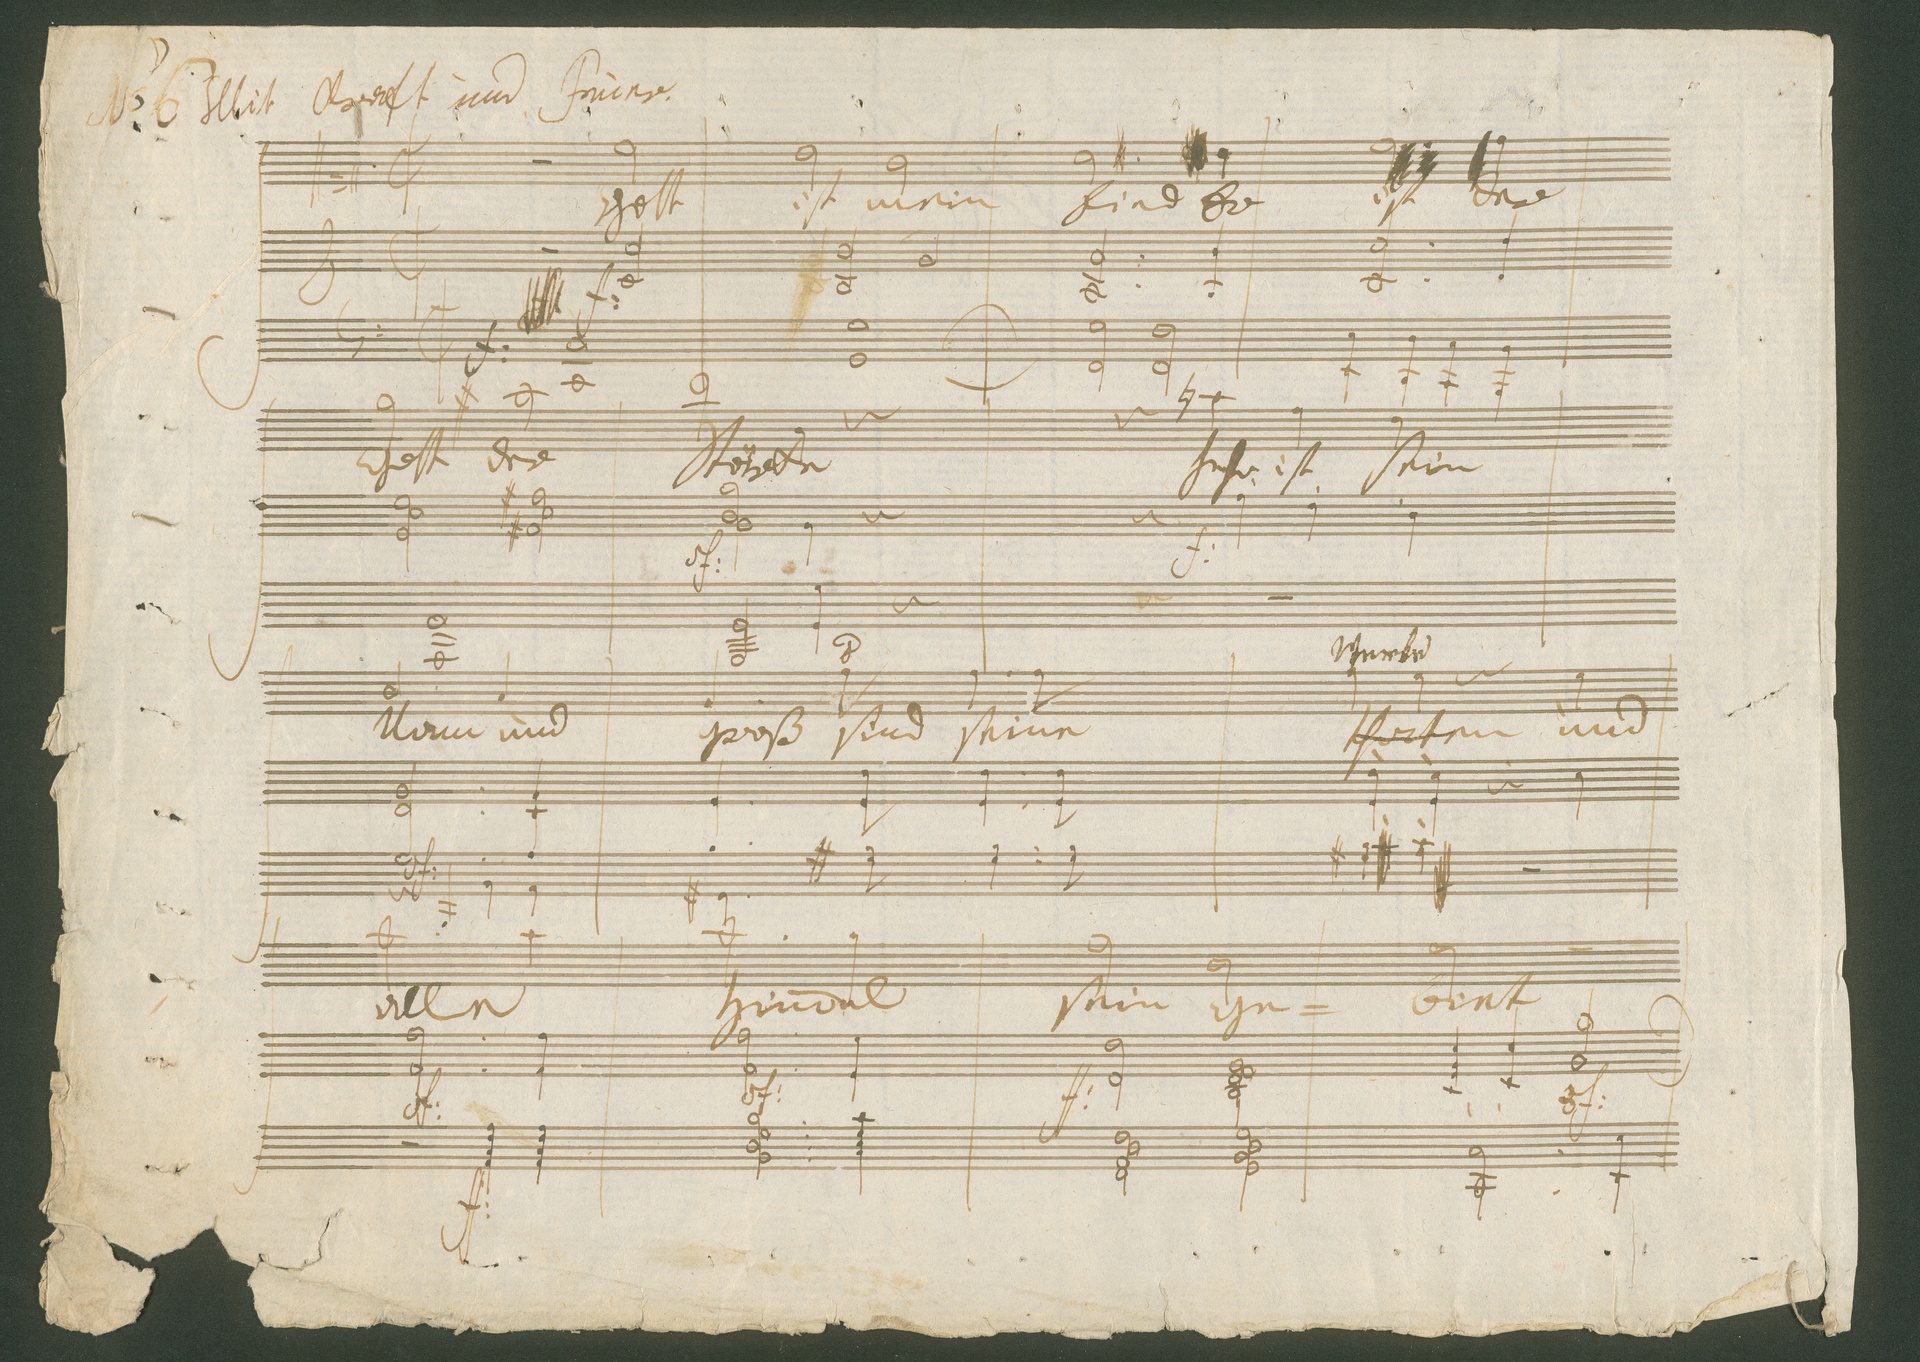 No 6 Mit Kraft und Feuer.
Gott ist mein Lied Er ist der
f:
f:
Gott der Stärke Hehr ist sein
sf: f:
Werke
Nam und groß sind seine und
sf:
alle Him̄el sein Ge= biet
sf: sf: f: sf:
f: